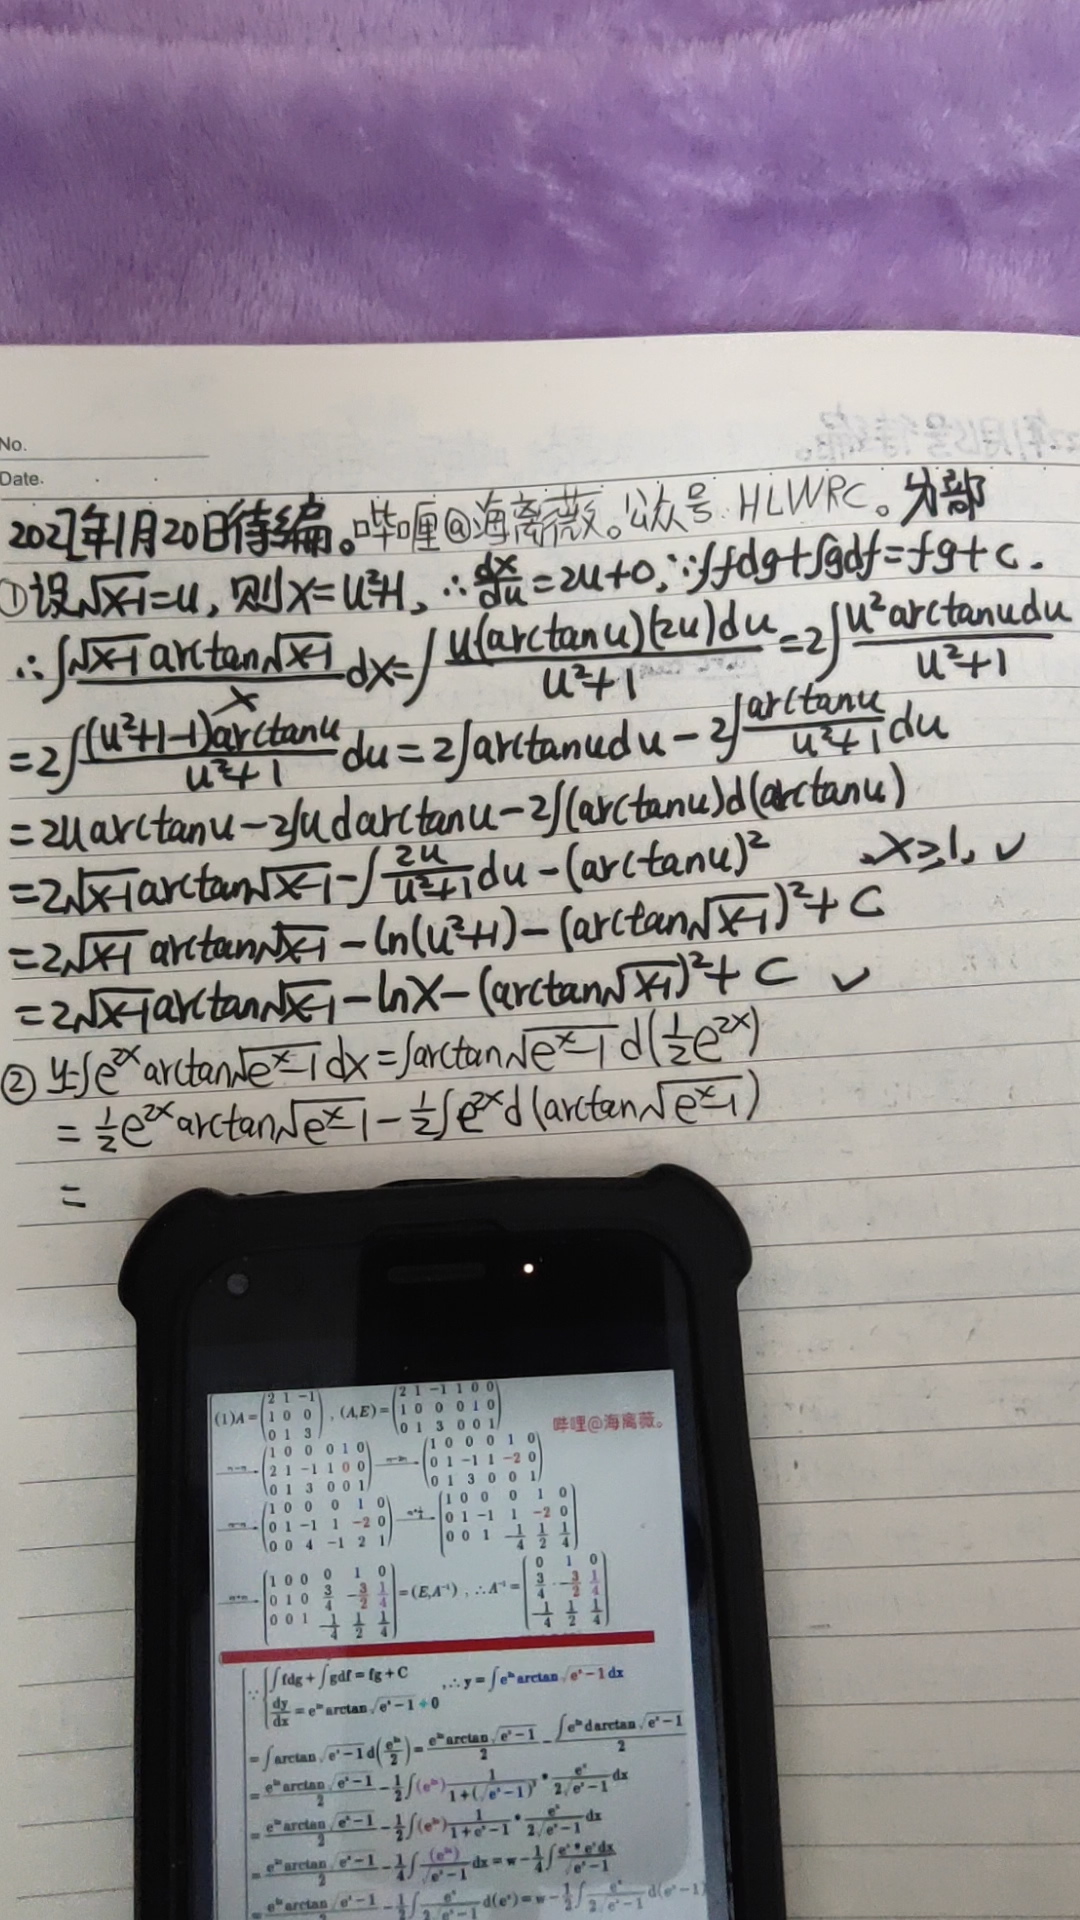 No.
Date.
2022年1月20日待编。哔哩@海离薇。公众号HLWRC。分部
①设√(x-1)=u, 则x=u²+1, ∴dx/du=2u+0, ∵∫fdg+∫gdf=fg+C.
∴∫(√(x-1) arctan√(x-1))/x dx=∫(u(arctanu)(2u)du)/(u²+1)=2∫(u²arctanudu)/(u²+1)
=2∫((u²+1-1)arctanu)/(u²+1) du=2∫arctanudu-2∫(arctanu)/(u²+1) du
=2uarctanu-2∫udarctanu-2∫(arctanu)d(arctanu)
=2√(x-1)arctan√(x-1)-∫2u/(u²+1) du-(arctanu)² ,x≥1,✓
=2√(x-1)arctan√(x-1)-ln(u²+1)-(arctan√(x-1))²+C
=2√(x-1)arctan√(x-1)-lnx-(arctan√(x-1))²+C ✓
②y=∫e^(2x)arctan√(e^x-1)dx=∫arctan√(e^x-1)d(½e^(2x))
=½e^(2x)arctan√(e^x-1)-½∫e^(2x)d(arctan√(e^x-1))
=
哔哩@海离薇。
(1)A=(2 1 -1; 1 0 0; 0 1 3), (A,E)=(2 1 -1 1 0 0; 1 0 0 0 1 0; 0 1 3 0 0 1)
→(1 0 0 0 1 0; 2 1 -1 1 0 0; 0 1 3 0 0 1)→(1 0 0 0 1 0; 0 1 -1 1 -2 0; 0 1 3 0 0 1)
→(1 0 0 0 1 0; 0 1 -1 1 -2 0; 0 0 4 -1 2 1)→(1 0 0 0 1 0; 0 1 -1 1 -2 0; 0 0 1 -1/4 1/2 1/4)
→(1 0 0 0 1 0; 0 1 0 3/4 -3/2 1/4; 0 0 1 -1/4 1/2 1/4)=(E,A⁻¹), ∴A⁻¹=(0 1 0; 3/4 -3/2 1/4; -1/4 1/2 1/4)
∵∫fdg+∫gdf=fg+C ,∴y=∫e^(2x)arctan√(e^x-1)dx
dy/dx=e^(2x)arctan√(e^x-1)+0
=∫arctan√(e^x-1)d(e^(2x)/2)=(e^(2x)arctan√(e^x-1))/2-(∫e^(2x)darctan√(e^x-1))/2
=(e^(2x)arctan√(e^x-1))/2-½∫(e^(2x))1/(1+(√(e^x-1))²)•e^x/(2√(e^x-1))dx
=(e^(2x)arctan√(e^x-1))/2-½∫(e^(2x))1/(1+e^x-1)•e^x/(2√(e^x-1))dx
=(e^(2x)arctan√(e^x-1))/2-¼∫(e^(2x))/√(e^x-1)dx=w-¼∫(e^x•e^xdx)/√(e^x-1)
=(e^(2x)arctan√(e^x-1))/2-½∫e^x/(2√(e^x-1))d(e^x)=w-½∫e^x/(2√(e^x-1))d(e^x-1)